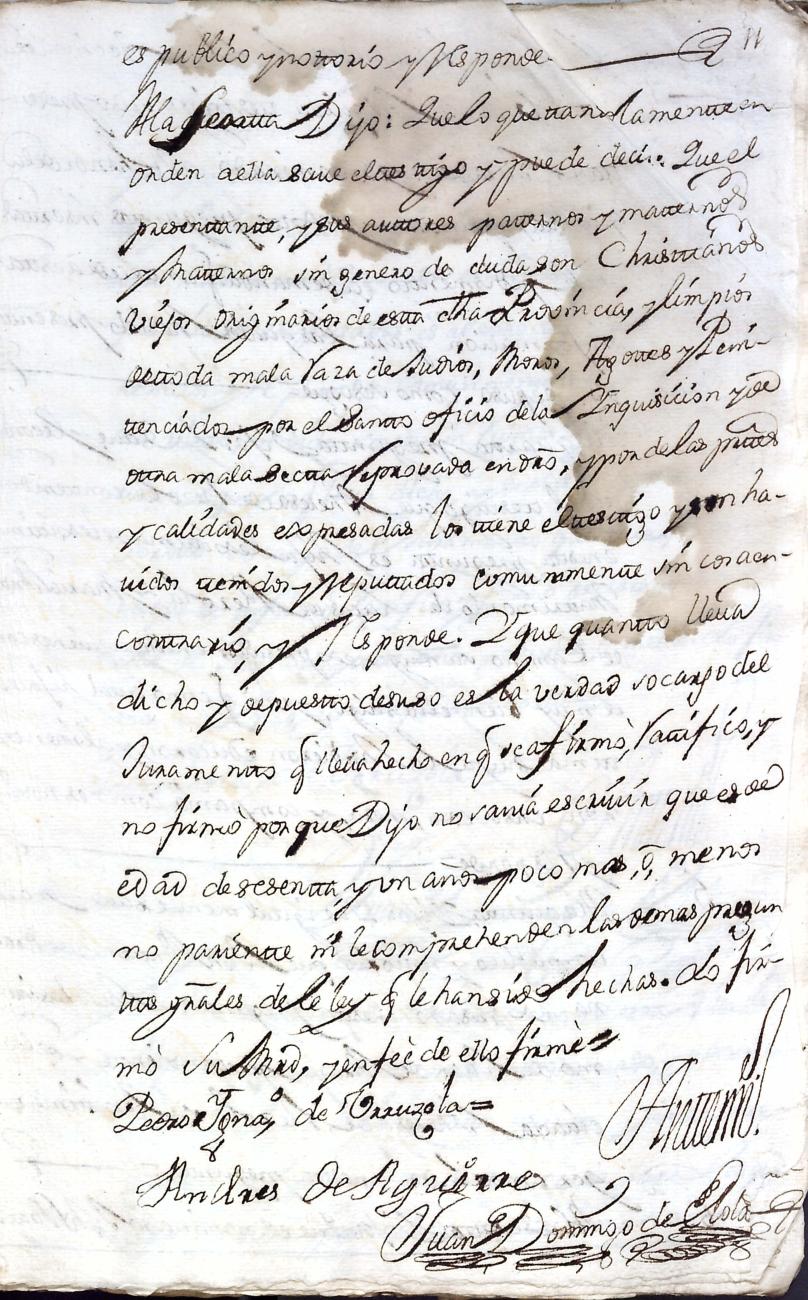 11
es publico y nottorio y Responde
A la sextta Dijo: Que lo que ttan solamentte en
orden a ella save el ttesttigo y puede decir. Que el
presenttantte, y sus auttores patternos y matternos
y Matternos sin genero de duda son Christtianos
Viejos originarios de estta dha Provincia, y limpios
de ttoda mala Raza de Judios, Moros, Agottes y Peni-
ttenciados por el Santto oficio de la Inquisicion y de
ottra mala sectta Reprovada en dro, y por de las parttes
y calidades expresadas los ttiene el ttesttigo y son ha-
vidos ttenidos y Reputtados comunmentte sin cosa en
conttrario, y Responde. Y que quantto lleva
dicho y depuestto desuso es la verdad so cargo del
Juramentto q lleva hecho en q se afirmò, Rattifico, y
no firmò porque Dijo no savia escrivir que es de
edad de sesentta, y un años poco mas, ò, menos
no parientte ni le comprehenden las demas pregun
ttas gñales de le ley q le han sido hechas. Lo fir-
mò Su Mrd, y en feè de ello firmè =
Pedro Ignaº de Urruzola =
Antemi.
Andres de Aguirre
Juan Domingo de Elola